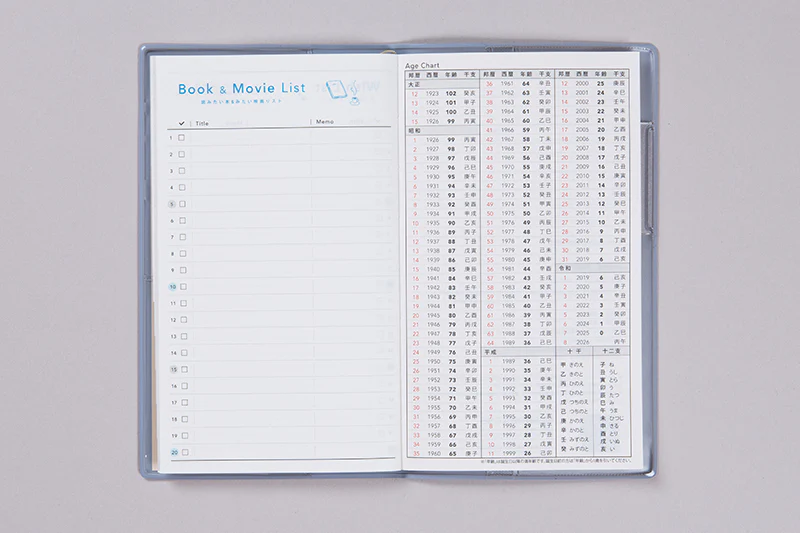 Book & Movie List
読みたい本&みたい映画リスト
✓ Title Memo
1
2
3
4
5
6
7
8
9
10
11
12
13
14
15
16
17
18
19
20
Age Chart
邦暦 西暦 年齢 干支
大正
12 1923 102 癸亥
13 1924 101 甲子
14 1925 100 乙丑
15 1926 99 丙寅
昭和
1 1926 99 丙寅
2 1927 98 丁卯
3 1928 97 戊辰
4 1929 96 己巳
5 1930 95 庚午
6 1931 94 辛未
7 1932 93 壬申
8 1933 92 癸酉
9 1934 91 甲戌
10 1935 90 乙亥
11 1936 89 丙子
12 1937 88 丁丑
13 1938 87 戊寅
14 1939 86 己卯
15 1940 85 庚辰
16 1941 84 辛巳
17 1942 83 壬午
18 1943 82 癸未
19 1944 81 甲申
20 1945 80 乙酉
21 1946 79 丙戌
22 1947 78 丁亥
23 1948 77 戊子
24 1949 76 己丑
25 1950 75 庚寅
26 1951 74 辛卯
27 1952 73 壬辰
28 1953 72 癸巳
29 1954 71 甲午
30 1955 70 乙未
31 1956 69 丙申
32 1957 68 丁酉
33 1958 67 戊戌
34 1959 66 己亥
35 1960 65 庚子
邦暦 西暦 年齢 干支
36 1961 64 辛丑
37 1962 63 壬寅
38 1963 62 癸卯
39 1964 61 甲辰
40 1965 60 乙巳
41 1966 59 丙午
42 1967 58 丁未
43 1968 57 戊申
44 1969 56 己酉
45 1970 55 庚戌
46 1971 54 辛亥
47 1972 53 壬子
48 1973 52 癸丑
49 1974 51 甲寅
50 1975 50 乙卯
51 1976 49 丙辰
52 1977 48 丁巳
53 1978 47 戊午
54 1979 46 己未
55 1980 45 庚申
56 1981 44 辛酉
57 1982 43 壬戌
58 1983 42 癸亥
59 1984 41 甲子
60 1985 40 乙丑
61 1986 39 丙寅
62 1987 38 丁卯
63 1988 37 戊辰
64 1989 36 己巳
平成
1 1989 36 己巳
2 1990 35 庚午
3 1991 34 辛未
4 1992 33 壬申
5 1993 32 癸酉
6 1994 31 甲戌
7 1995 30 乙亥
8 1996 29 丙子
9 1997 28 丁丑
10 1998 27 戊寅
11 1999 26 己卯
邦暦 西暦 年齢 干支
12 2000 25 庚辰
13 2001 24 辛巳
14 2002 23 壬午
15 2003 22 癸未
16 2004 21 甲申
17 2005 20 乙酉
18 2006 19 丙戌
19 2007 18 丁亥
20 2008 17 戊子
21 2009 16 己丑
22 2010 15 庚寅
23 2011 14 辛卯
24 2012 13 壬辰
25 2013 12 癸巳
26 2014 11 甲午
27 2015 10 乙未
28 2016 9 丙申
29 2017 8 丁酉
30 2018 7 戊戌
31 2019 6 己亥
令和
1 2019 6 己亥
2 2020 5 庚子
3 2021 4 辛丑
4 2022 3 壬寅
5 2023 2 癸卯
6 2024 1 甲辰
7 2025 0 乙巳
8 2026 丙午
十干 十二支
甲 きのえ 子 ね
乙 きのと 丑 うし
丙 ひのえ 寅 とら
丁 ひのと 卯 う
戊 つちのえ 辰 たつ
己 つちのと 巳 み
庚 かのえ 午 うま
辛 かのと 未 ひつじ
壬 みずのえ 申 さる
癸 みずのと 酉 とり
戌 いぬ
亥 い